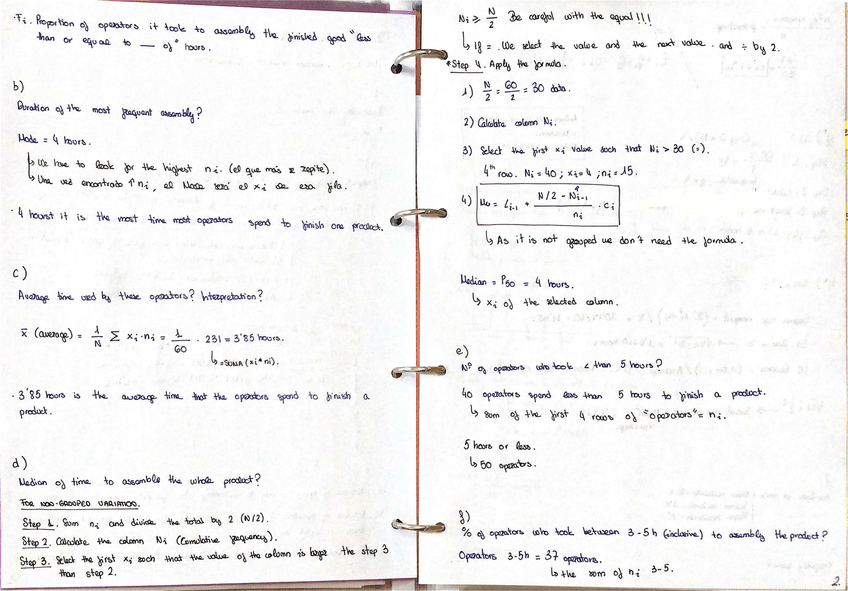 · Fi. Proportion of operators it took to assembly the finished good "less
than or equal to — of" hours.
b)
Duration of the most frequent assembly?
Mode = 4 hours.
↳ We have to look for the highest ni. (el que más se repite).
↳ Una vez encontrado ↑ ni, el Mode será el xi de esa fila.
· 4 hours it is the most time most operators spend to finish one product.
c)
Average time used by these operators? Interpretation?
x̄ (average) = 1/N Σ xi·ni = 1/60 · 231 = 3'85 hours.
↳ =SUMA (xi*ni).
· 3'85 hours is the average time that the operators spend to finish a
product.
d)
Median of time to assemble the whole product?
FOR NON-GROUPED VARIATION.
Step 1. Sum ni and divide the total by 2 (N/2).
Step 2. Calculate the column Ni (Cumulative frequency).
Step 3. Select the first xi such that the value of the column is larger the step 3
than step 2.
Ni ≥ N/2 Be careful with the equal!!!
↳ If = . We select the value and the next value. and ÷ by 2.
*Step 4. Apply the formula.
1) N/2 = 60/2 = 30 data.
2) Calculate column Ni.
3) Select the first xi value such that Ni > 30 (=).
4th row. Ni = 40 ; xi = 4 ; ni = 15.
4) Me = Li-1 + (N/2 - Ni-1)/ni · ci
↳ As it is not grouped we don't need the formula.
Median = P50 = 4 hours.
↳ xi of the selected column.
e)
Nº of operators who took < than 5 hours?
40 operators spend less than 5 hours to finish a product.
↳ sum of the first 4 rows of "operators" = ni.
5 hours or less.
↳ 50 operators.
f)
% of operators who took between 3-5h (inclusive) to assembly the product?
Operators 3-5h = 37 operators.
↳ the sum of ni 3-5.
2.